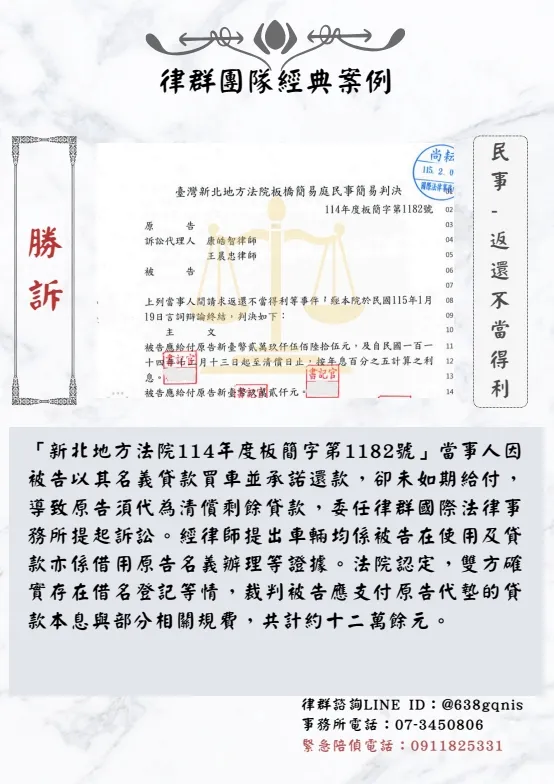 律群團隊經典案例
勝訴
民事-返還不當得利
尚耘
115. 2. 0
國際法律事務
臺灣新北地方法院板橋簡易庭民事簡易判決
114年度板簡字第1182號
原 告
訴訟代理人 康皓智律師
王晨忠律師
被 告
上列當事人間請求返還不當得利等事件,經本院於民國115年1月
19日言詞辯論終結,判決如下:
主 文
被告應給付原告新臺幣貳萬玖仟伍佰陸拾伍元,及自民國一百一
十四年 月十三日起至清償日止,按年息百分之五計算之利
息。
被告應給付原告新臺幣 貳仟元。
書記官
書記官
02
03
04
05
06
07
08
09
10
11
12
13
14
「新北地方法院114年度板簡字第1182號」當事人因
被告以其名義貸款買車並承諾還款,卻未如期給付,
導致原告須代為清償剩餘貸款,委任律群國際法律事
務所提起訴訟。經律師提出車輛均係被告在使用及貸
款亦係借用原告名義辦理等證據。法院認定,雙方確
實存在借名登記等情,裁判被告應支付原告代墊的貸
款本息與部分相關規費,共計約十二萬餘元。
律群諮詢LINE ID:@638gqnis
事務所電話:07-3450806
緊急陪偵電話:0911825331